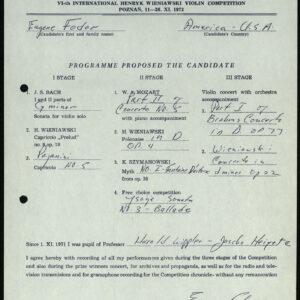 VI-th INTERNATIONAL HENRYK WIENIAWSKI VIOLIN COMPETITION
POZNAŃ, 11—26. XI. 1972
Eugene Fodor
(Candidate's first and family name)
America - U.S.A.
(Candidate's Country)
PROGRAMME PROPOSED THE CANDIDATE
I STAGE
1. J. S. BACH
I and II parts of
G minor
Sonata for violin solo
2. H. WIENIAWSKI
Capriccio „Prelud"
from op. 10
3. Paganini
Capriccio No 5
II STAGE
1. W. A. MOZART
Part II of
Concerto No 5
with piano accompaniment
2. H. WIENIAWSKI
Polonaise in D
op. 4
3. K. SZYMANOWSKI
Myth No. I - Fontaine D'Arethuse
from op. 30
4. Free choice competition
Ysaye Sonata
No 3 - Ballade
III STAGE
Violin concert with orchestra
accompaniment
1. Part I of
Brahms Concerto
in D OP 77
2. Wieniawski
Concerto in
d minor op 22
Since 1. XI. 1971 I was pupil of Professor Harold Wippler - Jascha Heifetz
I agree hereby with recording of all my performances given during the three stages of the Competition
and also during the prize winners concert, for archives and propaganda, as well as for the radio and tele-
vision transmissions and for gramophone recording for the Competition chronicle- without any remuneration